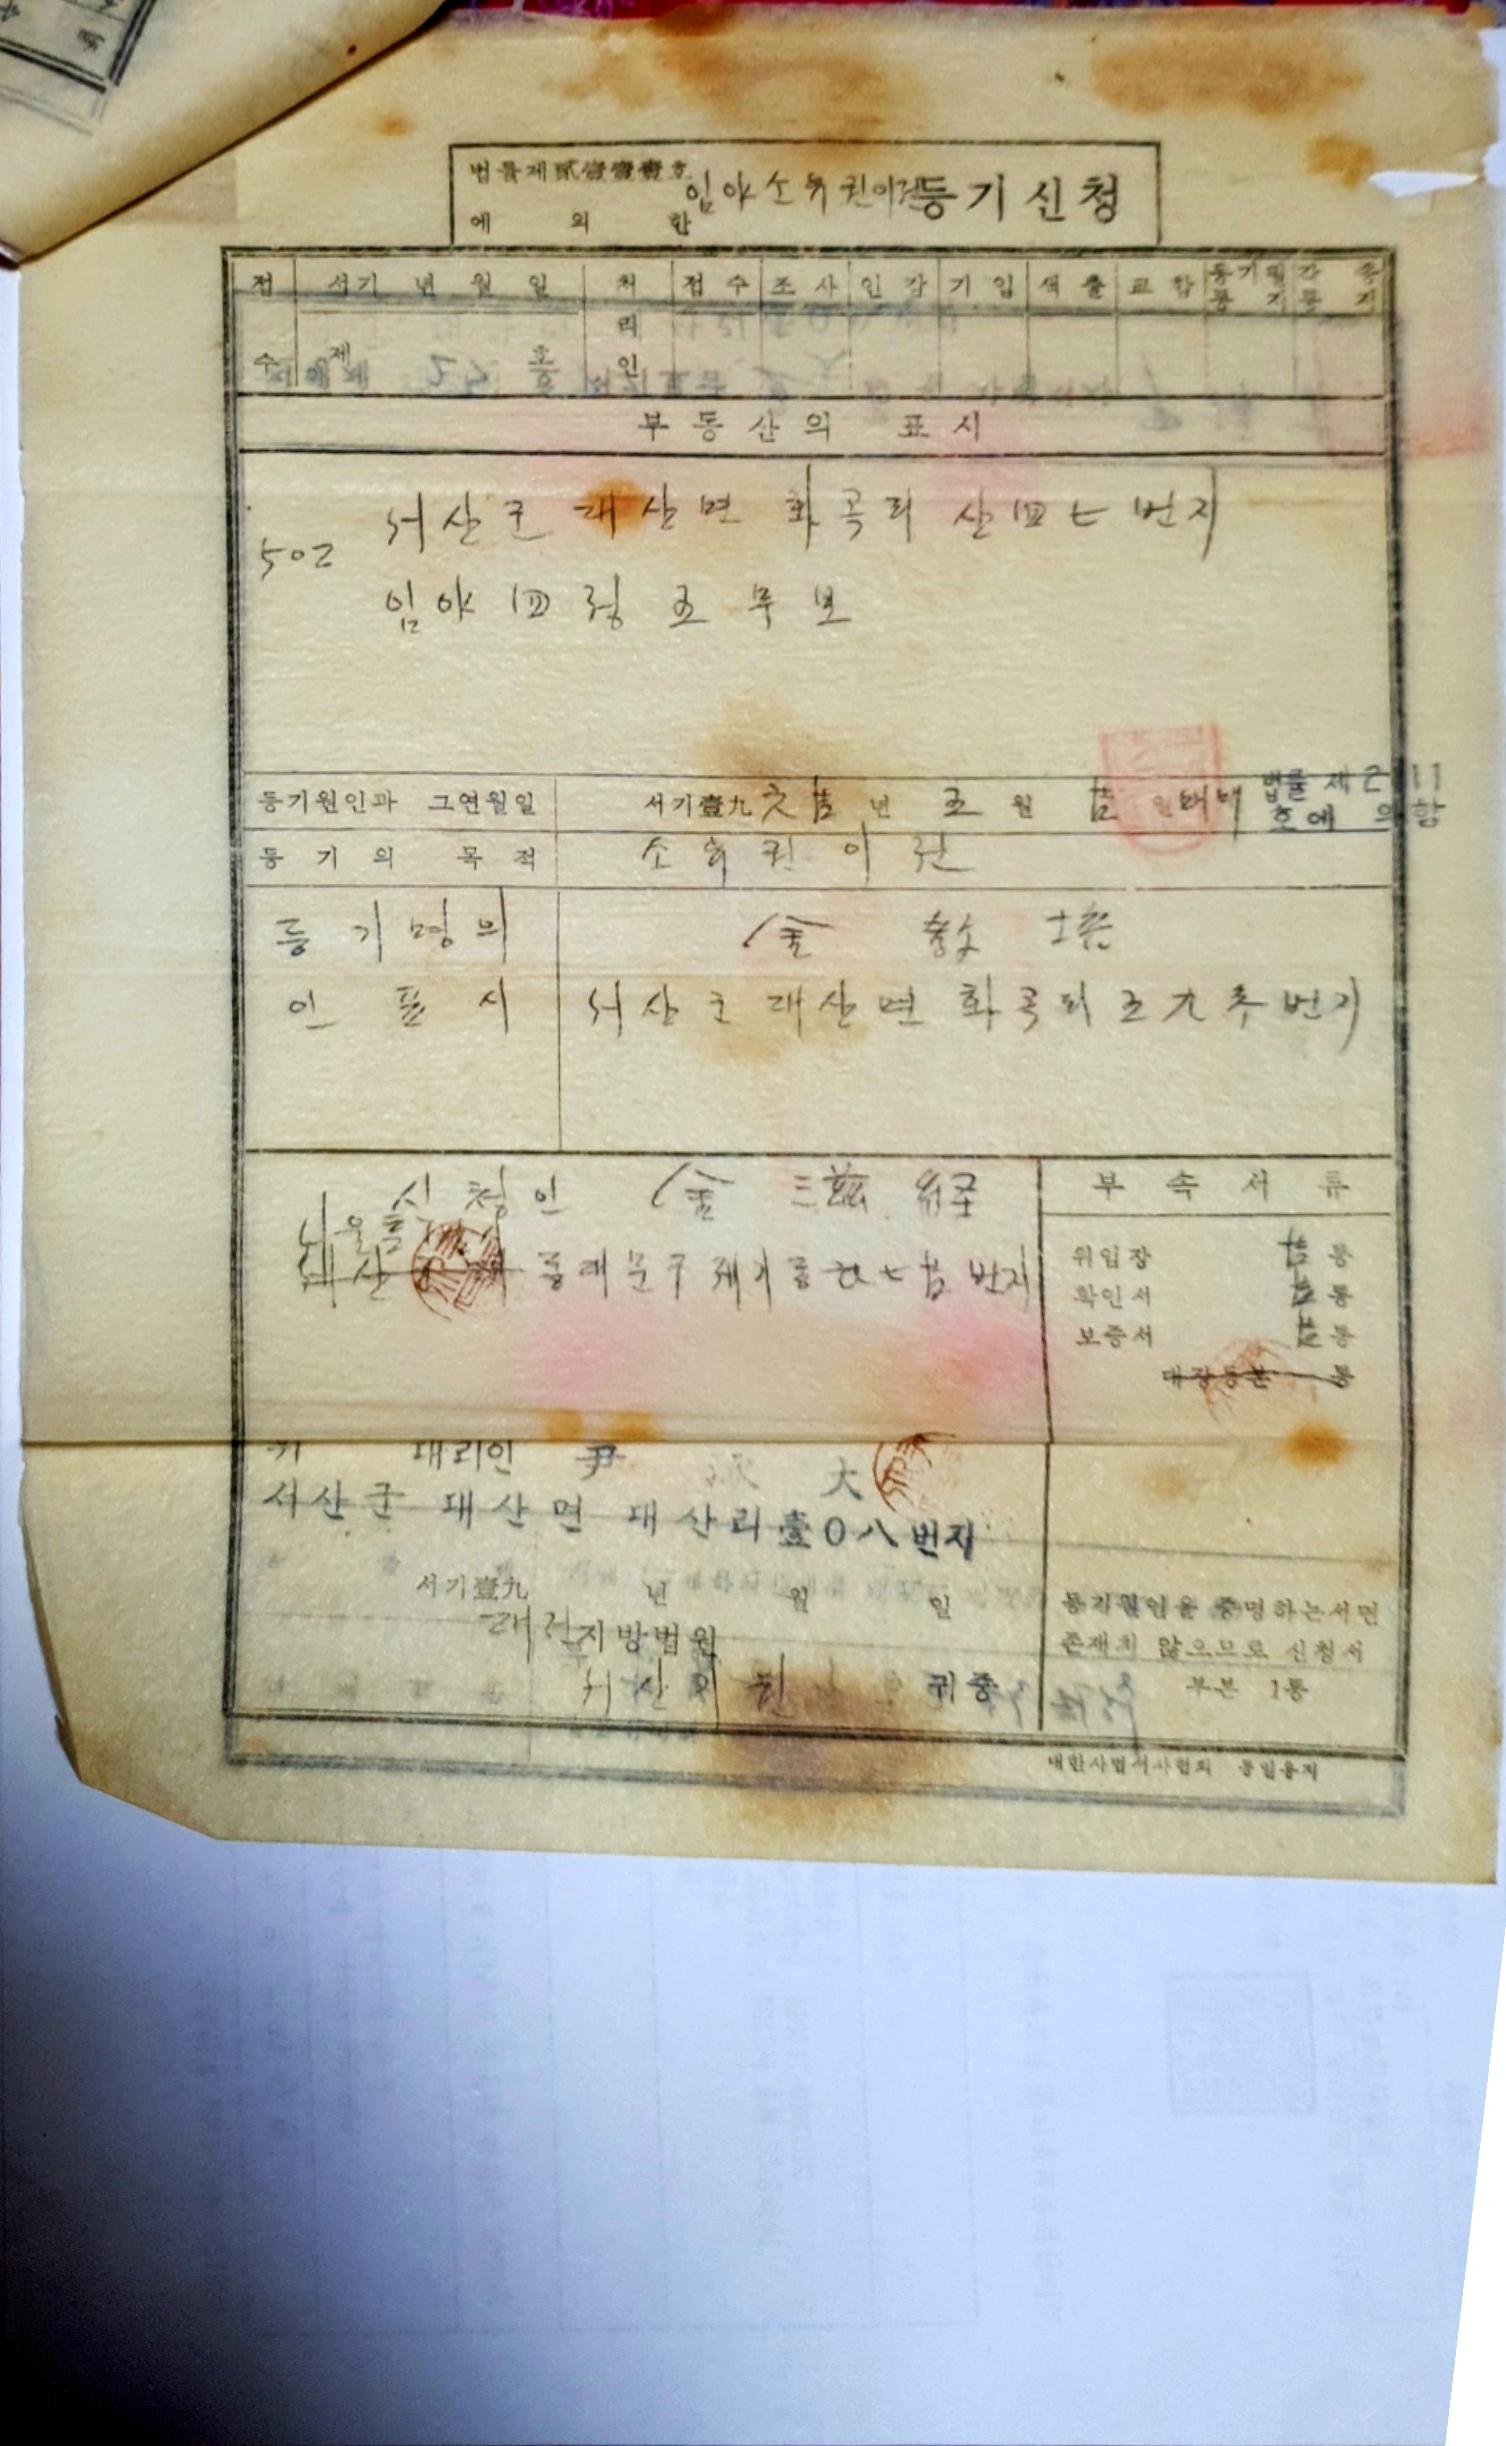 법률제貳壹壹壹호
에 의 한
임야소유권이전등기신청
접수 서기 년 월 일 제 호
처리인 접수 조사 인감 기입 색출 교합 등기필통지 각종통지
부동산의 표시
서산군 대산면 화곡리 산四七번지
502
임야 四정 五무보
등기원인과 그연월일 서기壹九 년 五 월 일매매 법률제2111호에 의함
등기의 목적 소유권이전
등기명의인 표시 金
서산군 대산면 화곡리 五九 번지
신청인 金
서울특
동대문구 제기동 번지
부속서류
위임장 통
확인서 통
보증서 통
대장등본 통
위 대리인 尹 大
서산군 대산면 대산리 壹0八번지
서기壹九 년 월 일
대전지방법원
서산지원 귀중
등기원인을 증명하는서면
존재치 않으므로 신청서
부본 1통
대한사법서사협회 통일용지